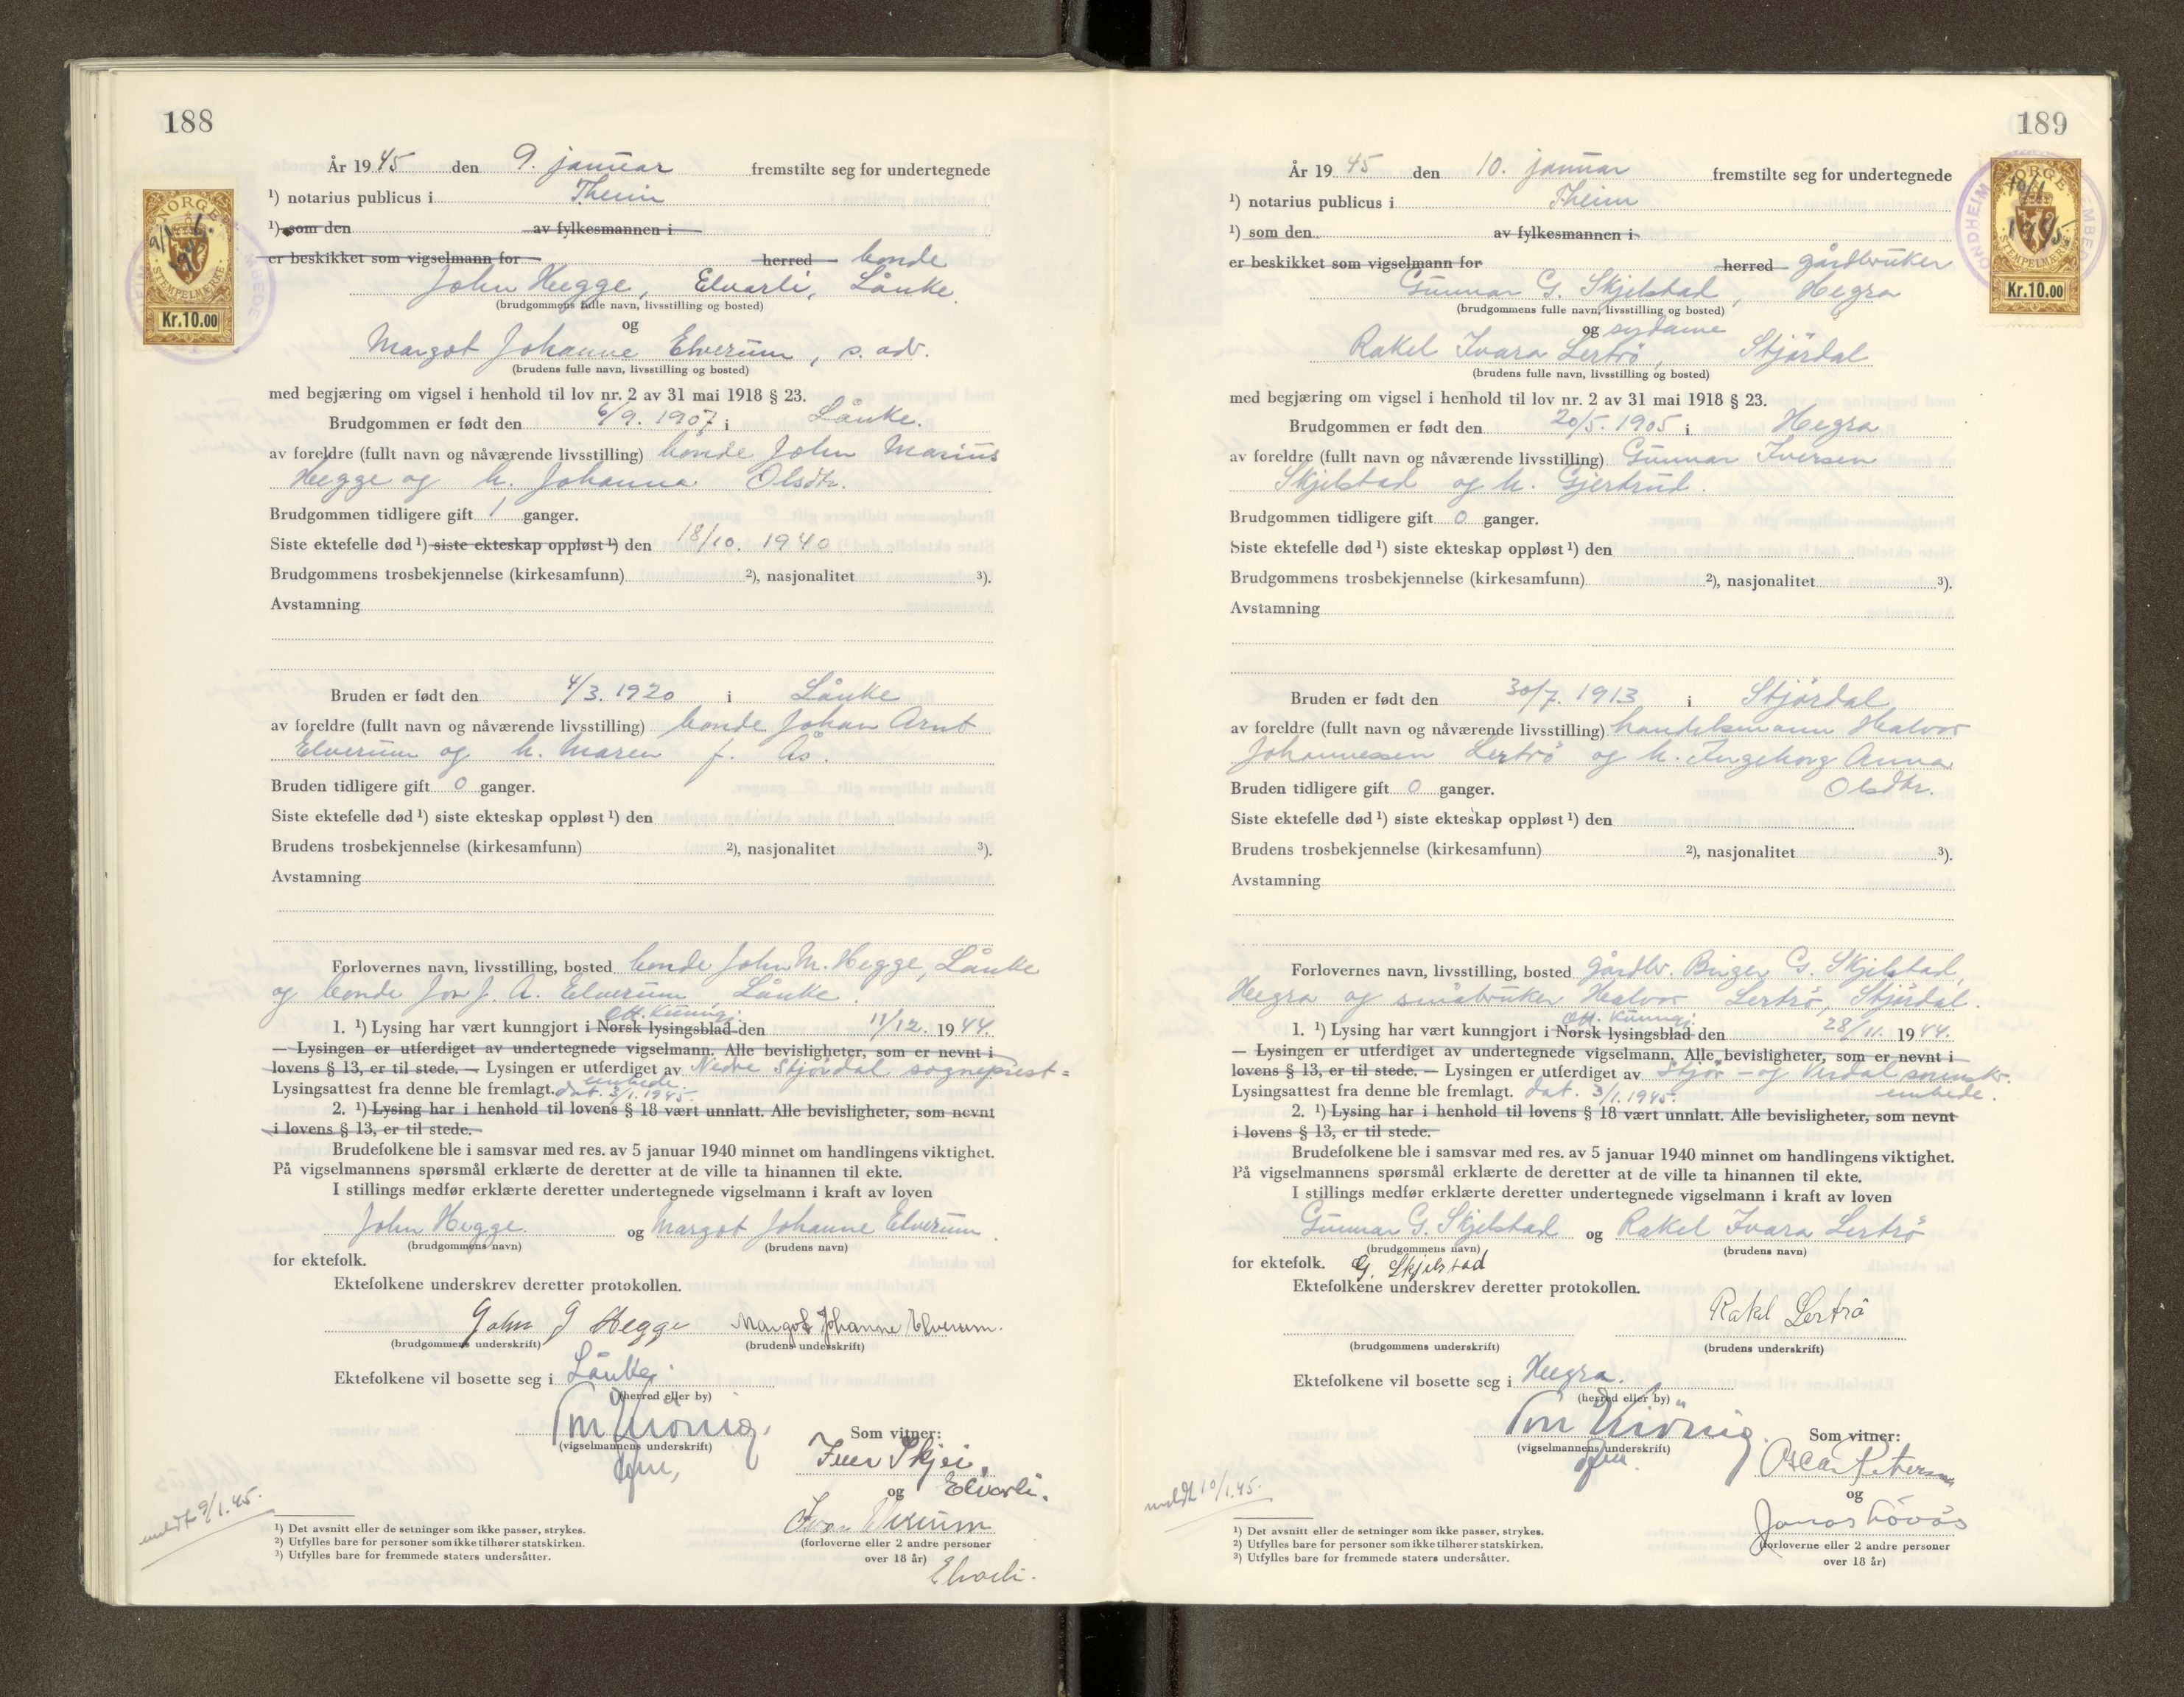 188
År 1945 den 9. januar fremstilte seg for undertegnede
¹) notarius publicus i Theim
¹) som den av fylkesmannen i
er beskikket som vigselmann for herred bonde
John Hegge, Elvarli, Lånke.
(brudgommens fulle navn, livsstilling og bosted)
og
Margot Johanne Elverum, s. adr.
(brudens fulle navn, livsstilling og bosted)
med begjæring om vigsel i henhold til lov nr. 2 av 31 mai 1918 § 23.
Brudgommen er født den 6/9. 1907 i Lånke.
av foreldre (fullt navn og nåværende livsstilling) bonde John Marius
Hegge og h. Johanna Olsdtr.
Brudgommen tidligere gift 1 ganger.
Siste ektefelle død ¹) siste ekteskap oppløst ¹) den 18/10. 1940
Brudgommens trosbekjennelse (kirkesamfunn) ²), nasjonalitet ³).
Avstamning
Bruden er født den 4/3. 1920 i Lånke
av foreldre (fullt navn og nåværende livsstilling) bonde Johan Arnt
Elverum og h. Maren f. Ås.
Bruden tidligere gift 0 ganger.
Siste ektefelle død ¹) siste ekteskap oppløst ¹) den
Brudens trosbekjennelse (kirkesamfunn) ²), nasjonalitet ³).
Avstamning
Forlovernes navn, livsstilling, bosted bonde John M. Hegge, Lånke
og bonde Jon J. A. Elverum, Lånke.
off. kunngj.
1. ¹) Lysing har vært kunngjort i Norsk lysingsblad den 11/12. 1944.
— Lysingen er utferdiget av undertegnede vigselmann. Alle bevisligheter, som er nevnt i
lovens § 13, er til stede. — Lysingen er utferdiget av Nedre Stjørdal sogneprest=
embede.
Lysingsattest fra denne ble fremlagt. dat. 3/1. 1945.
2. ¹) Lysing har i henhold til lovens § 18 vært unnlatt. Alle bevisligheter, som nevnt
i lovens § 13, er til stede.
Brudefolkene ble i samsvar med res. av 5 januar 1940 minnet om handlingens viktighet.
På vigselmannens spørsmål erklærte de deretter at de ville ta hinannen til ekte.
I stillings medfør erklærte deretter undertegnede vigselmann i kraft av loven
John Hegge og Margot Johanne Elverum.
(brudgommens navn) (brudens navn)
for ektefolk.
Ektefolkene underskrev deretter protokollen.
John J Hegge Margot Johanne Elverum.
(brudgommens underskrift) (brudens underskrift)
Ektefolkene vil bosette seg i Lånke.
(herred eller by)
(vigselmannens underskrift)
Som vitner:
Iver Skjei,
og Elvarli.
Elverum
(forloverne eller 2 andre personer
over 18 år)
Elvarli.
meldt 9/1.45.
¹) Det avsnitt eller de setninger som ikke passer, strykes.
²) Utfylles bare for personer som ikke tilhører statskirken.
³) Utfylles bare for fremmede staters undersåtter.
NORGE
STEMPELMERKE
Kr.10.00
189
År 1945 den 10. januar fremstilte seg for undertegnede
¹) notarius publicus i Theim
¹) som den av fylkesmannen i
er beskikket som vigselmann for herred gårdbruker
Gunnar G. Skjelstad, Hegra
(brudgommens fulle navn, livsstilling og bosted)
og sydame
Rakel Ivara Lertrö, Stjördal
(brudens fulle navn, livsstilling og bosted)
med begjæring om vigsel i henhold til lov nr. 2 av 31 mai 1918 § 23.
Brudgommen er født den 20/5. 1905 i Hegra
av foreldre (fullt navn og nåværende livsstilling) Gunnar Iversen
Skjelstad og h. Gjertrud.
Brudgommen tidligere gift 0 ganger.
Siste ektefelle død ¹) siste ekteskap oppløst ¹) den
Brudgommens trosbekjennelse (kirkesamfunn) ²), nasjonalitet ³).
Avstamning
Bruden er født den 30/7. 1913 i Stjördal
av foreldre (fullt navn og nåværende livsstilling) handelsmann Halvor
Johannessen Lertrö og h. Ingeborg Anna
Olsdtr.
Bruden tidligere gift 0 ganger.
Siste ektefelle død ¹) siste ekteskap oppløst ¹) den
Brudens trosbekjennelse (kirkesamfunn) ²), nasjonalitet ³).
Avstamning
Forlovernes navn, livsstilling, bosted gårdbr. Birger G. Skjelstad,
Hegra og småbruker Halvor Lertrö, Stjördal.
off. kunngj.
1. ¹) Lysing har vært kunngjort i Norsk lysingsblad den 28/11. 1944.
— Lysingen er utferdiget av undertegnede vigselmann. Alle bevisligheter, som er nevnt i
lovens § 13, er til stede. — Lysingen er utferdiget av Stjör- og Verdal sorenskr.
embede.
Lysingsattest fra denne ble fremlagt. dat. 3/1.1945.
2. ¹) Lysing har i henhold til lovens § 18 vært unnlatt. Alle bevisligheter, som nevnt
i lovens § 13, er til stede.
Brudefolkene ble i samsvar med res. av 5 januar 1940 minnet om handlingens viktighet.
På vigselmannens spørsmål erklærte de deretter at de ville ta hinannen til ekte.
I stillings medfør erklærte deretter undertegnede vigselmann i kraft av loven
Gunnar G. Skjelstad og Rakel Ivara Lertrö
(brudgommens navn) (brudens navn)
for ektefolk. G. Skjelstad
Ektefolkene underskrev deretter protokollen.
Rakel Lertrö
(brudgommens underskrift) (brudens underskrift)
Ektefolkene vil bosette seg i Hegra.
(herred eller by)
(vigselmannens underskrift)
Som vitner:
Oscar Petersen
og
Jonas Lövås
(forloverne eller 2 andre personer
over 18 år)
meldt 10/1.45.
¹) Det avsnitt eller de setninger som ikke passer, strykes.
²) Utfylles bare for personer som ikke tilhører statskirken.
³) Utfylles bare for fremmede staters undersåtter.
NORGE
10/1
1945.
STEMPELMERKE
Kr.10.00